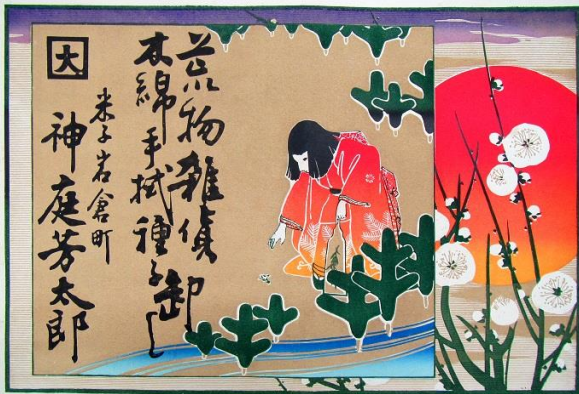 荒物雑貨
木綿手拭種子卸し
米子岩倉町
神庭芳太郎
大